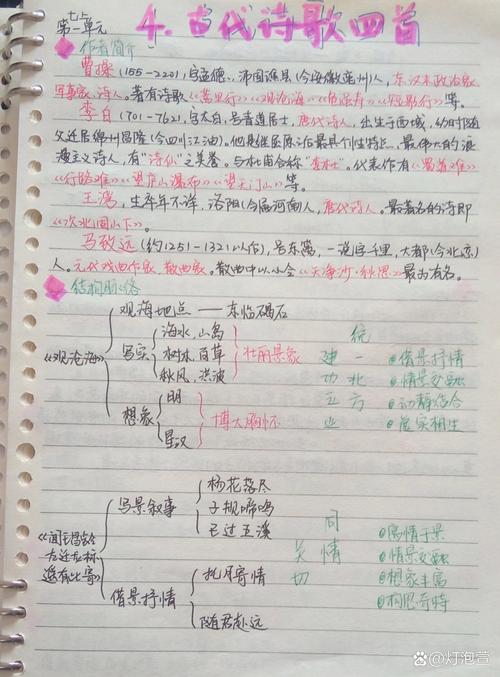 七上
第一单元
4. 古代诗歌四首
作者简介
曹操(155-220),字孟德,沛国谯县(今安徽亳州)人,东汉末政治家、
军事家、诗人。著有诗歌《蒿里行》《观沧海》《龟虽寿》《短歌行》等。
李白(701-762),字太白,号青莲居士,唐代诗人,出生于西域,幼时随
父迁居绵州昌隆(今四川江油)。他是继屈原后最具个性特点、最伟大的浪
漫主义诗人,有"诗仙"之美誉。与杜甫合称"李杜"。代表作有《蜀道难》
《行路难》《望庐山瀑布》《望天门山》等。
王湾,生卒年不详,洛阳(今属河南)人,唐代诗人。最著名的诗即
《次北固山下》。
马致远(约1251-1321以后),号东篱,一说字千里,大都(今北京)
人。元代戏曲作家、散曲家。散曲中以小令《天净沙·秋思》最为有名。
结构脉络
《观沧海》
观海地点 —— 东临碣石
写实
海水、山岛
树木、百草
秋风、洪波
壮丽景象
想象
日月
星汉
博大胸怀
建功立业
统一北方
借景抒情
情景交融
动静结合
虚实相生
《闻王昌龄
左迁龙标
遥有此寄》
写景叙事
杨花落尽
子规啼鸣
已过五溪
借景抒情
托月寄情
随君赴远
关切
同情
寓情于景
情景交融
想象丰富
构思奇特
灯泡萱